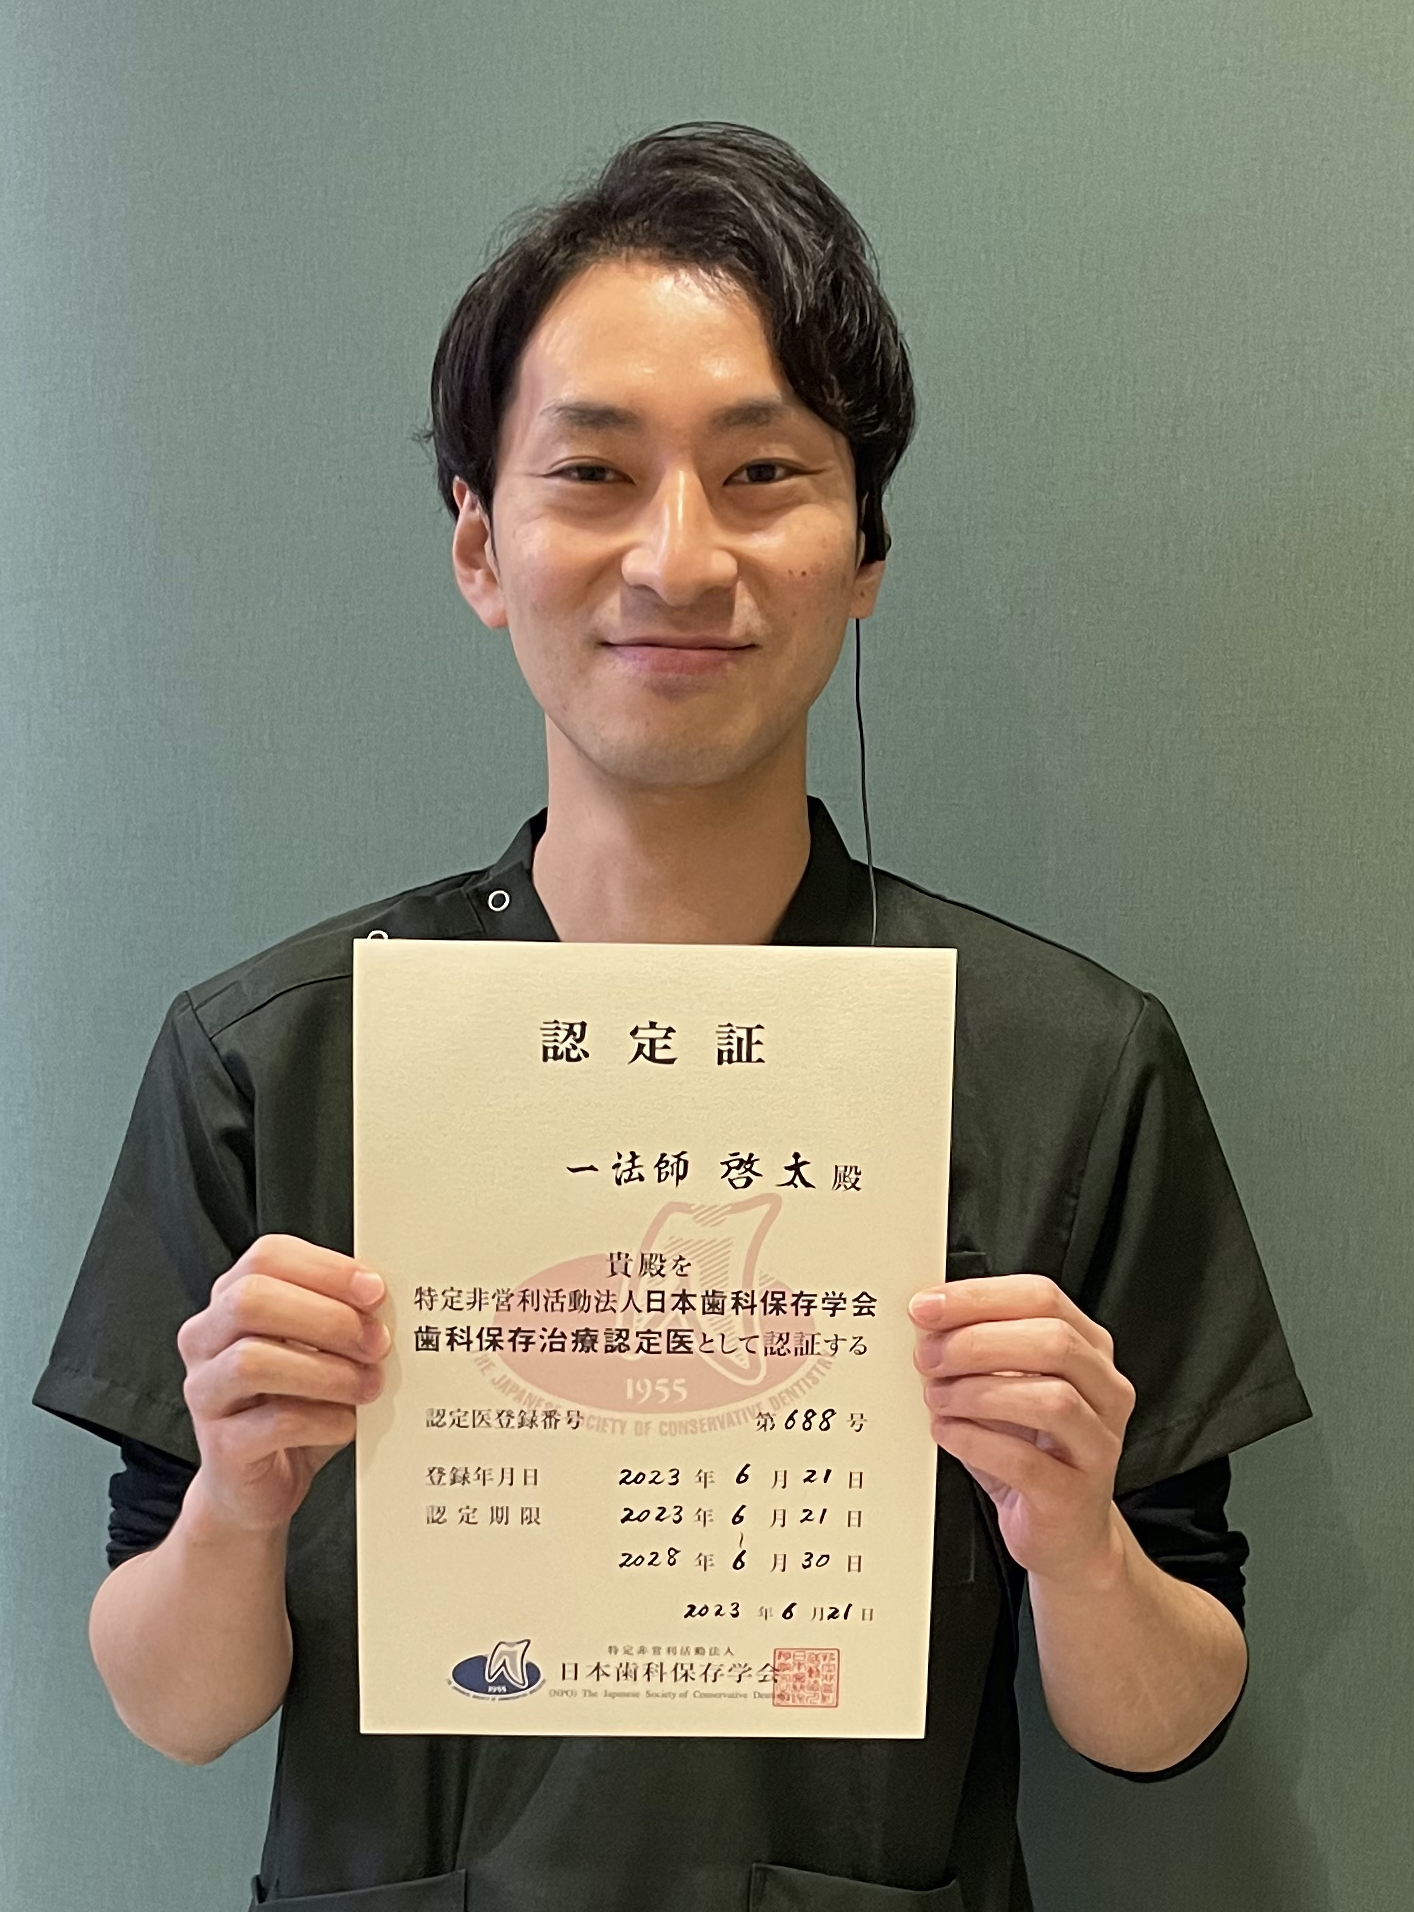 認定証
一法師 啓太 殿
貴殿を
特定非営利活動法人日本歯科保存学会
歯科保存治療認定医として認証する
1955
THE JAPANESE SOCIETY OF CONSERVATIVE DENTISTRY
認定医登録番号 第688号
登録年月日 2023年6月21日
認定期限 2023年6月21日
~
2028年6月30日
2023年6月21日
1955
特定非営利活動法人
日本歯科保存学会
(NPO) The Japanese Society of Conservative